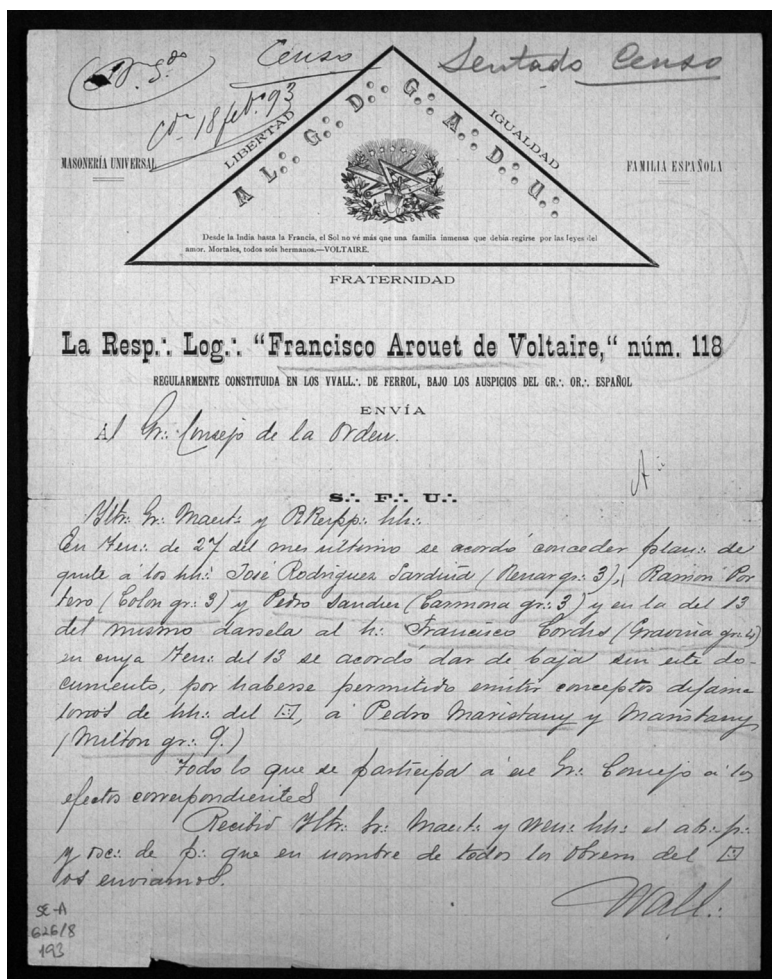 Censo
Sentado Censo
18 feb.º 93
LIBERTAD
IGUALDAD
MASONERÍA UNIVERSAL
FAMILIA ESPAÑOLA
A L.·. G.·. D.·. G.·. A.·. D.·. U.·.
Desde la India hasta la Francia, el Sol no vé más que una familia inmensa que debía regirse por las leyes del
amor. Mortales, todos sois hermanos.—VOLTAIRE.
FRATERNIDAD
La Resp.·. Log.·. "Francisco Arouet de Voltaire," núm. 118
REGULARMENTE CONSTITUIDA EN LOS VVALL.·. DE FERROL, BAJO LOS AUSPICIOS DEL GR.·. OR.·. ESPAÑOL
ENVÍA
Al Gr.·. Consejo de la Orden.
S.·. F.·. U.·.
Yltr.·. Gr.·. Maest.·. y RResp.·. hh.·.
En Ten.·. de 27 del mes ultimo se acordó conceder plan.·. de
quite á los hh.·. José Rodriguez Sardiña (Renar gr.·. 3), Ramón Por-
tero (Colon gr.·. 3) y Pedro Sandier (Carmona gr.·. 3) y en la del 13
del mismo darsela al h.·. Francisco (Gravina gr.·. 4)
en cuya Ten.·. del 13 se acordó dar de baja sin este do-
cumento, por haberse permitido emitir conceptos difama
torios de hh.·. del, á Pedro Maristany y Maristany
(Milton gr.·. 9.)
Todo lo que se participa á ese Gr.·. Consejo á los
efectos correspondientes
Recibid Yltr.·. Gr.·. Maest.·. y Ven.·. hh.·. el ab.·. p.·.
y osc.·. de p.·. que en nombre de todos los obreros del
os enviamos.
Wall.·.
SE-A
626/8
193